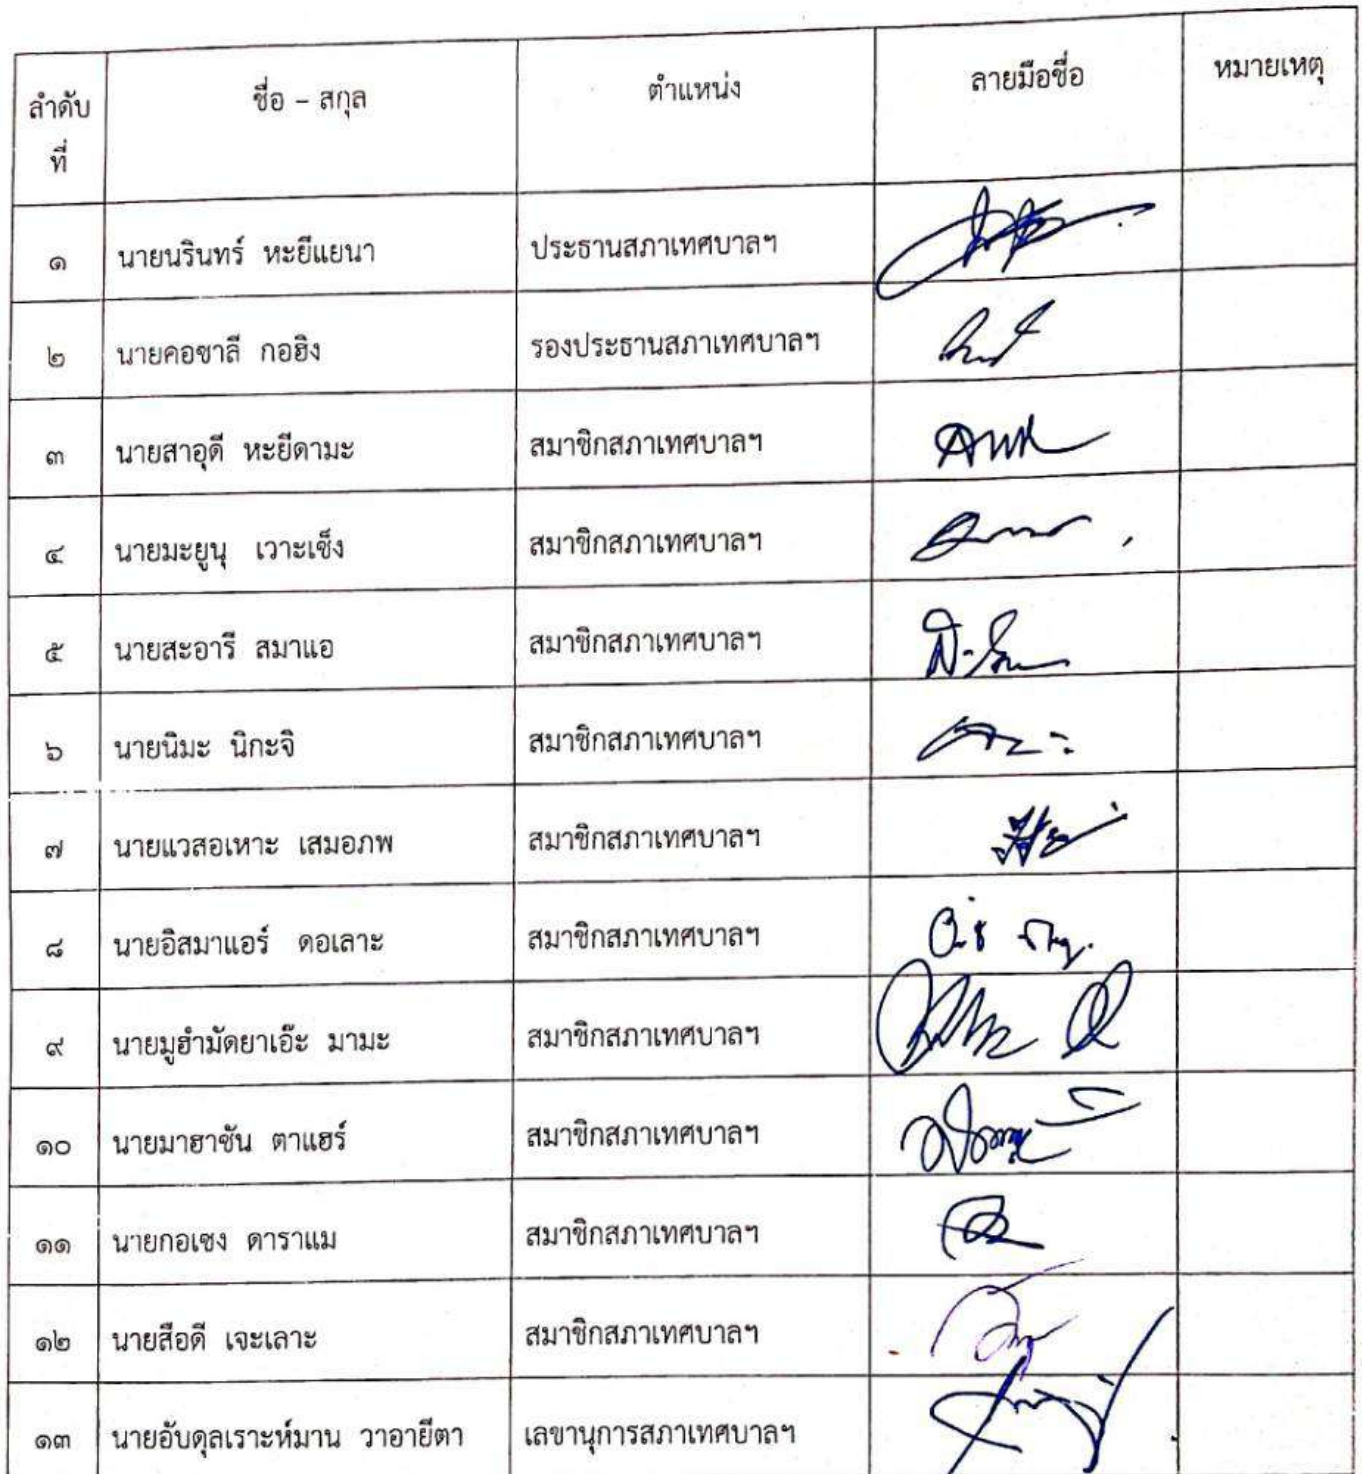 ลำดับที่ ชื่อ – สกุล ตำแหน่ง ลายมือชื่อ หมายเหตุ
๑ นายนรินทร์ หะยีแยนา ประธานสภาเทศบาลฯ
๒ นายคอซาลี กอฮิง รองประธานสภาเทศบาลฯ
๓ นายสาอุดี หะยีดามะ สมาชิกสภาเทศบาลฯ
๔ นายมะยูนุ เวาะเซ็ง สมาชิกสภาเทศบาลฯ
๕ นายสะอารี สมาแอ สมาชิกสภาเทศบาลฯ
๖ นายนิมะ นิกะจิ สมาชิกสภาเทศบาลฯ
๗ นายแวสอเหาะ เสมอภพ สมาชิกสภาเทศบาลฯ
๘ นายอิสมาแอร์ ดอเลาะ สมาชิกสภาเทศบาลฯ
๙ นายมูฮำมัดยาเอ๊ะ มามะ สมาชิกสภาเทศบาลฯ
๑๐ นายมาฮาซัน ตาแฮร์ สมาชิกสภาเทศบาลฯ
๑๑ นายกอเซง ดาราแม สมาชิกสภาเทศบาลฯ
๑๒ นายสือดี เจะเลาะ สมาชิกสภาเทศบาลฯ
๑๓ นายอับดุลเราะห์มาน วาอายีตา เลขานุการสภาเทศบาลฯ